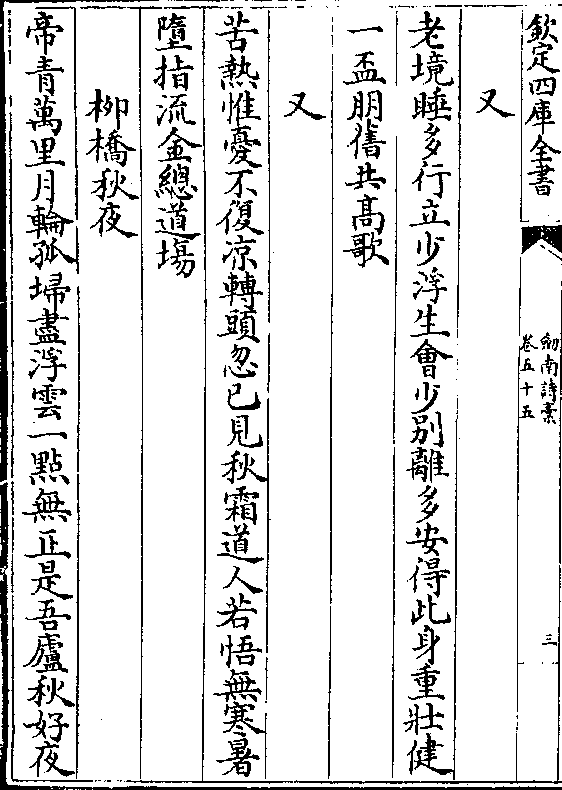 欽定四庫全書
劒南詩稾
卷五十五
三
又
老境睡多行立少浮生會少别離多安得此身重壯健
一盃朋舊共髙歌
又
苦熱惟憂不復凉轉頭忽已見秋霜道人若悟無寒暑
墮指流金總道塲
柳橋秋夜
帝青萬里月輪孤埽盡浮雲一點無正是吾廬秋好夜